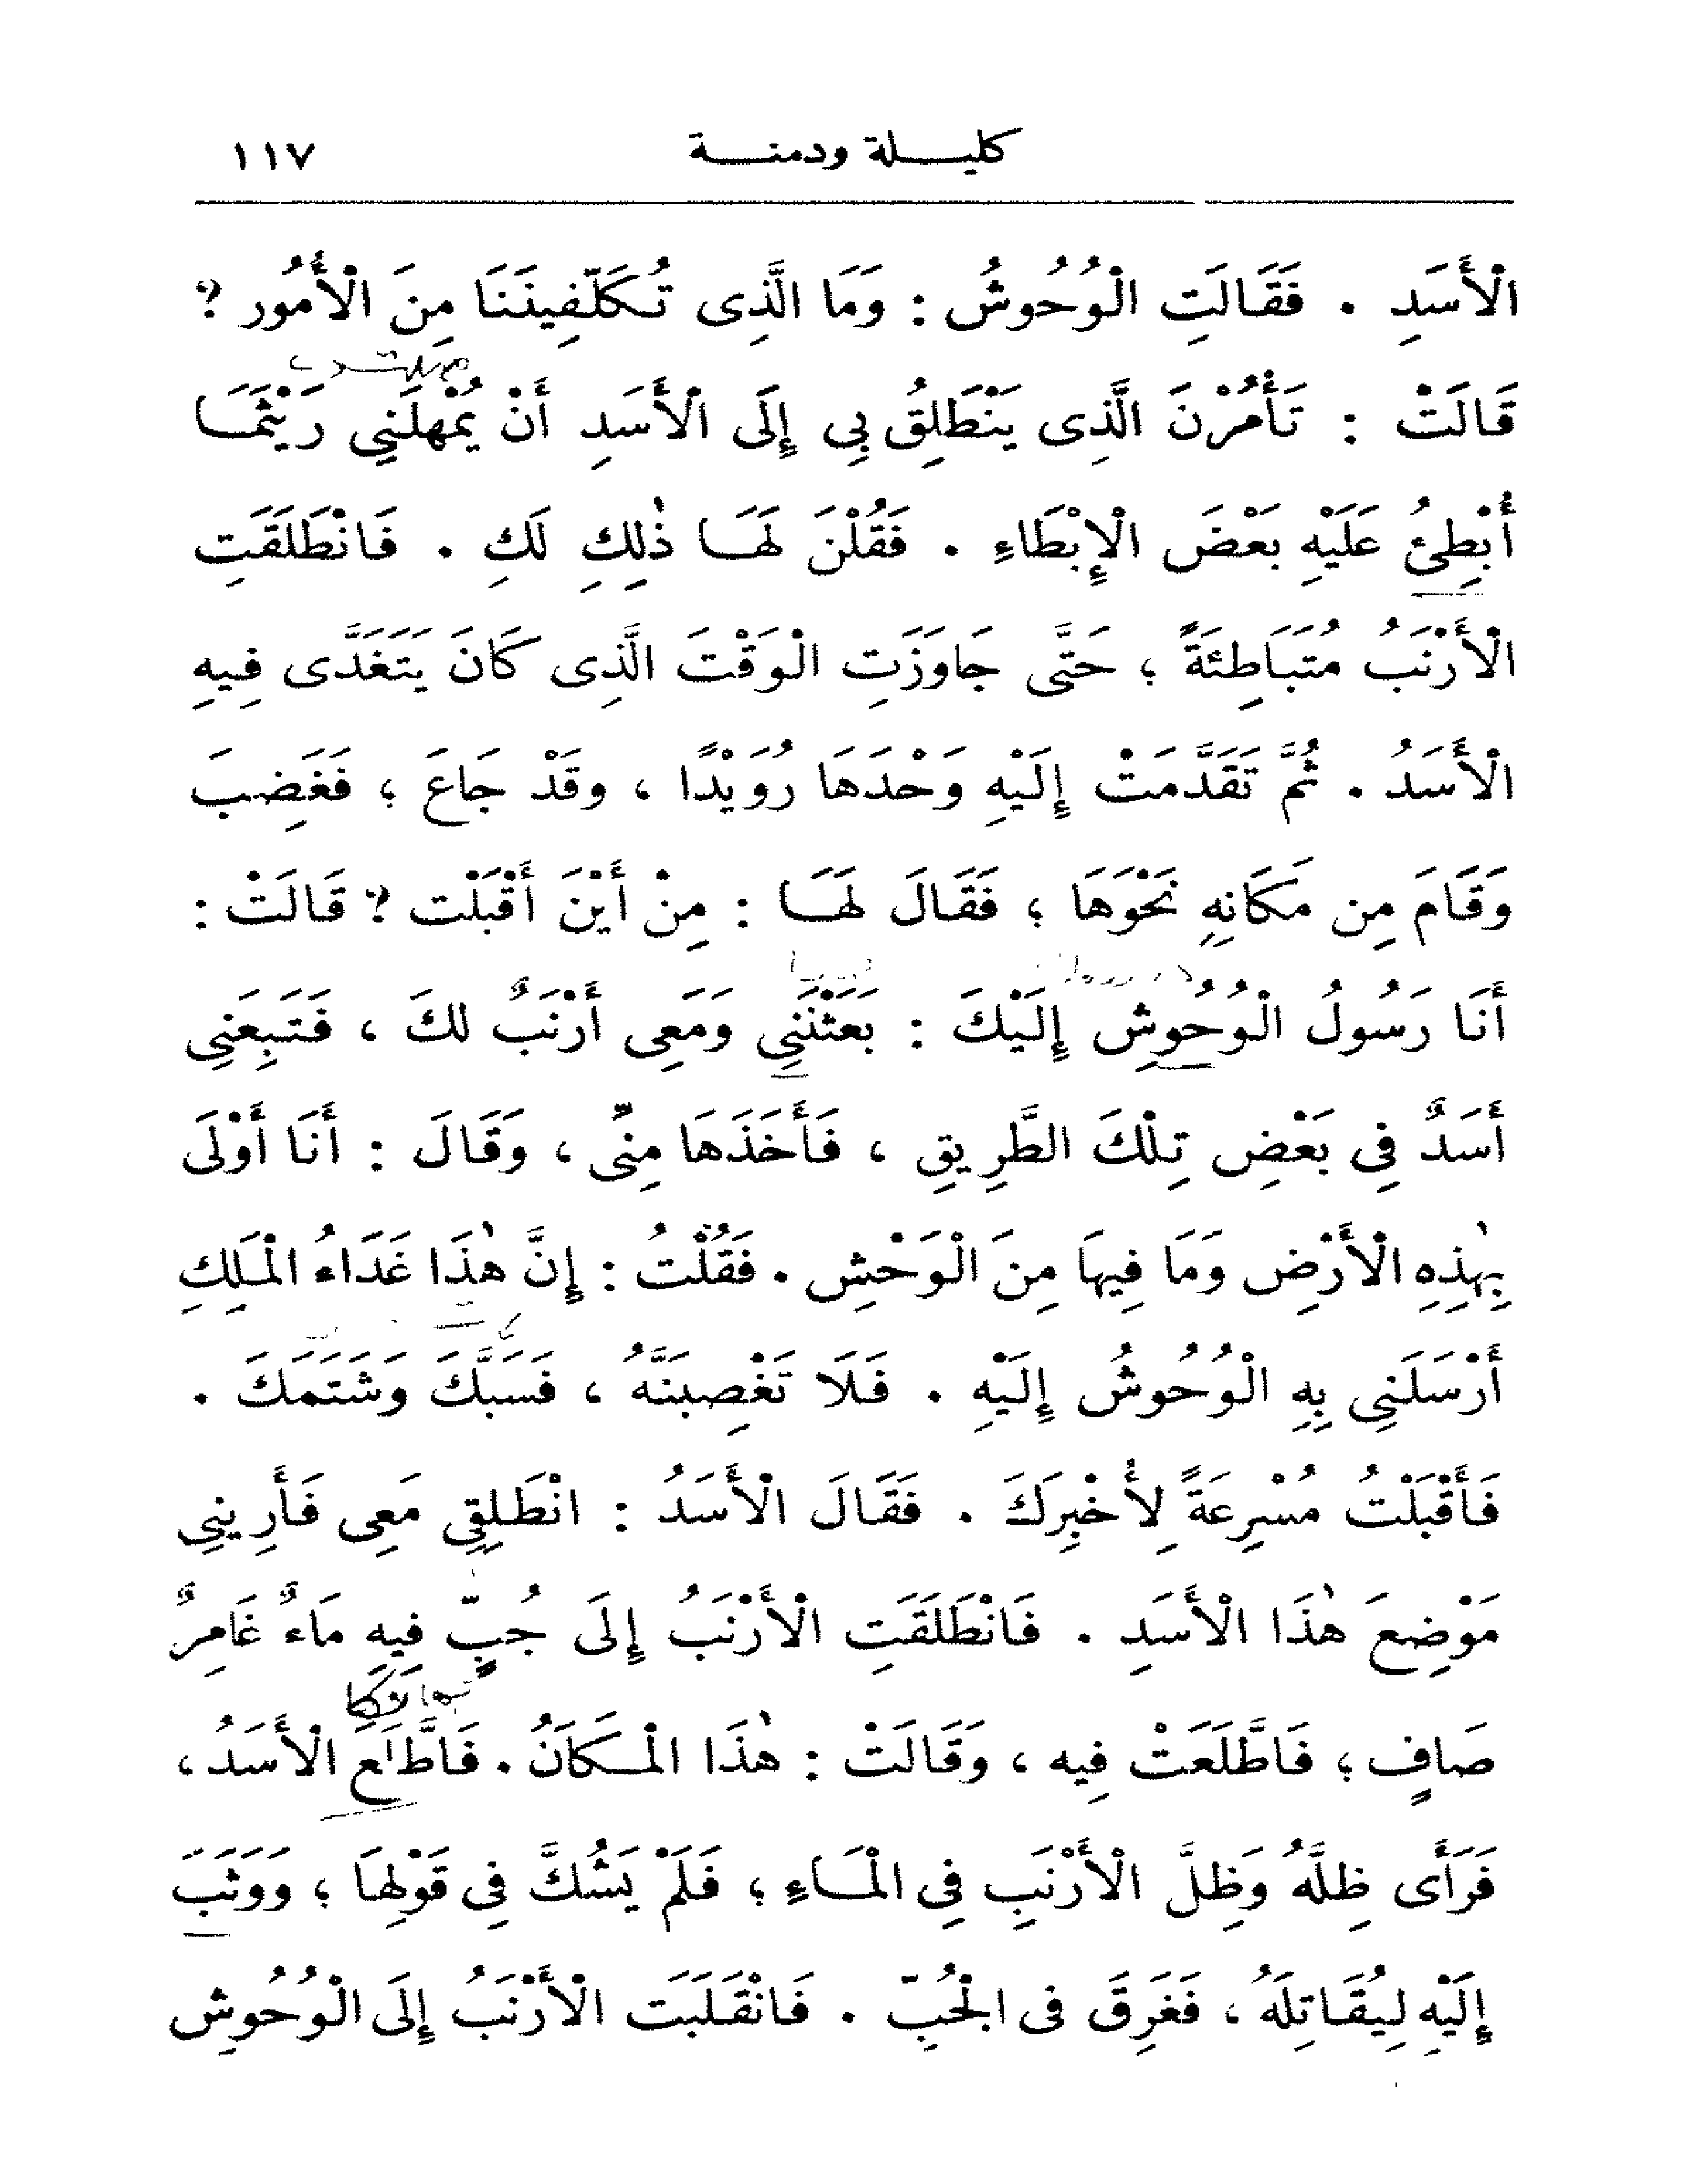 كليلة ودمنة ١١٧
الْأَسَدِ . فَقَالَتِ الْوُحُوشُ : وَمَا الَّذِى تُكَلِّفِينَنَا مِنَ الْأُمُور ؟
قَالَتْ : تَأْمُرْنَ الَّذِى يَنْطَلِقُ بِى إِلَى الْأَسَدِ أَنْ يُمْهِلَنِي رَيْثَمَا
أُبْطِئُ عَلَيْهِ بَعْضَ الْإِبْطَاءِ . فَقُلْنَ لَهَا ذٰلِكِ لَكِ . فَانْطَلَقَتِ
الْأَرْنَبُ مُتَبَاطِئَةً ؛ حَتَّى جَاوَزَتِ الْوَقْتَ الَّذِى كَانَ يَتَغَدَّى فِيهِ
الْأَسَدُ . ثُمَّ تَقَدَّمَتْ إِلَيْهِ وَحْدَهَا رُوَيْدًا ، وقَدْ جَاعَ ؛ فَغَضِبَ
وَقَامَ مِن مَكَانِهِ نَحْوَهَا ؛ فَقَالَ لَهَا : مِنْ أَيْنَ أَقْبَلْت ؟ قَالَتْ :
أَنَا رَسُولُ الْوُحُوشِ إِلَيْكَ : بَعَثْنَنِي وَمَعِى أَرْنَبٌ لكَ ، فَتَبِعَنِى
أَسَدٌ فِى بَعْضِ تِلْكَ الطَّرِيقِ ، فَأَخَذَهَا مِنِّى ، وَقَالَ : أَنَا أَوْلَى
بِهٰذِهِ الْأَرْضِ وَمَا فِيهَا مِنَ الْوَحْشِ . فَقُلْتُ : إِنَّ هٰذَا غَدَاءُ الْمَلِكِ
أَرْسَلَنِى بِهِ الْوُحُوشُ إِلَيْهِ . فَلَا تَغْصِبَنَّهُ ، فَسَبَّكَ وَشَتَمَكَ .
فَأَقْبَلْتُ مُسْرِعَةً لِأُخْبِرَكَ . فَقَالَ الْأَسَدُ : انْطَلِقِى مَعِى فَأَرِينِى
مَوْضِعَ هٰذَا الْأَسَدِ . فَانْطَلَقَتِ الْأَرْنَبُ إِلَى جُبٍّ فِيهِ مَاءٌ غَامِرٌ
صَافٍ ؛ فَاطَّلَعَتْ فِيه ، وَقَالَتْ : هٰذَا الْمَكَانُ . فَاطَّلَعَ الْأَسَدُ ،
فَرَأَى ظِلَّهُ وَظِلَّ الْأَرْنَبِ فِى الْمَاءِ ؛ فَلَمْ يَشُكَّ فِى قَوْلِهَا ؛ وَوَثَبَ
إِلَيْهِ لِيُقَاتِلَهُ ، فَغَرِقَ فى الْجُبِّ . فَانْقَلَبَت الْأَرْنَبُ إِلَى الْوُحُوشِ